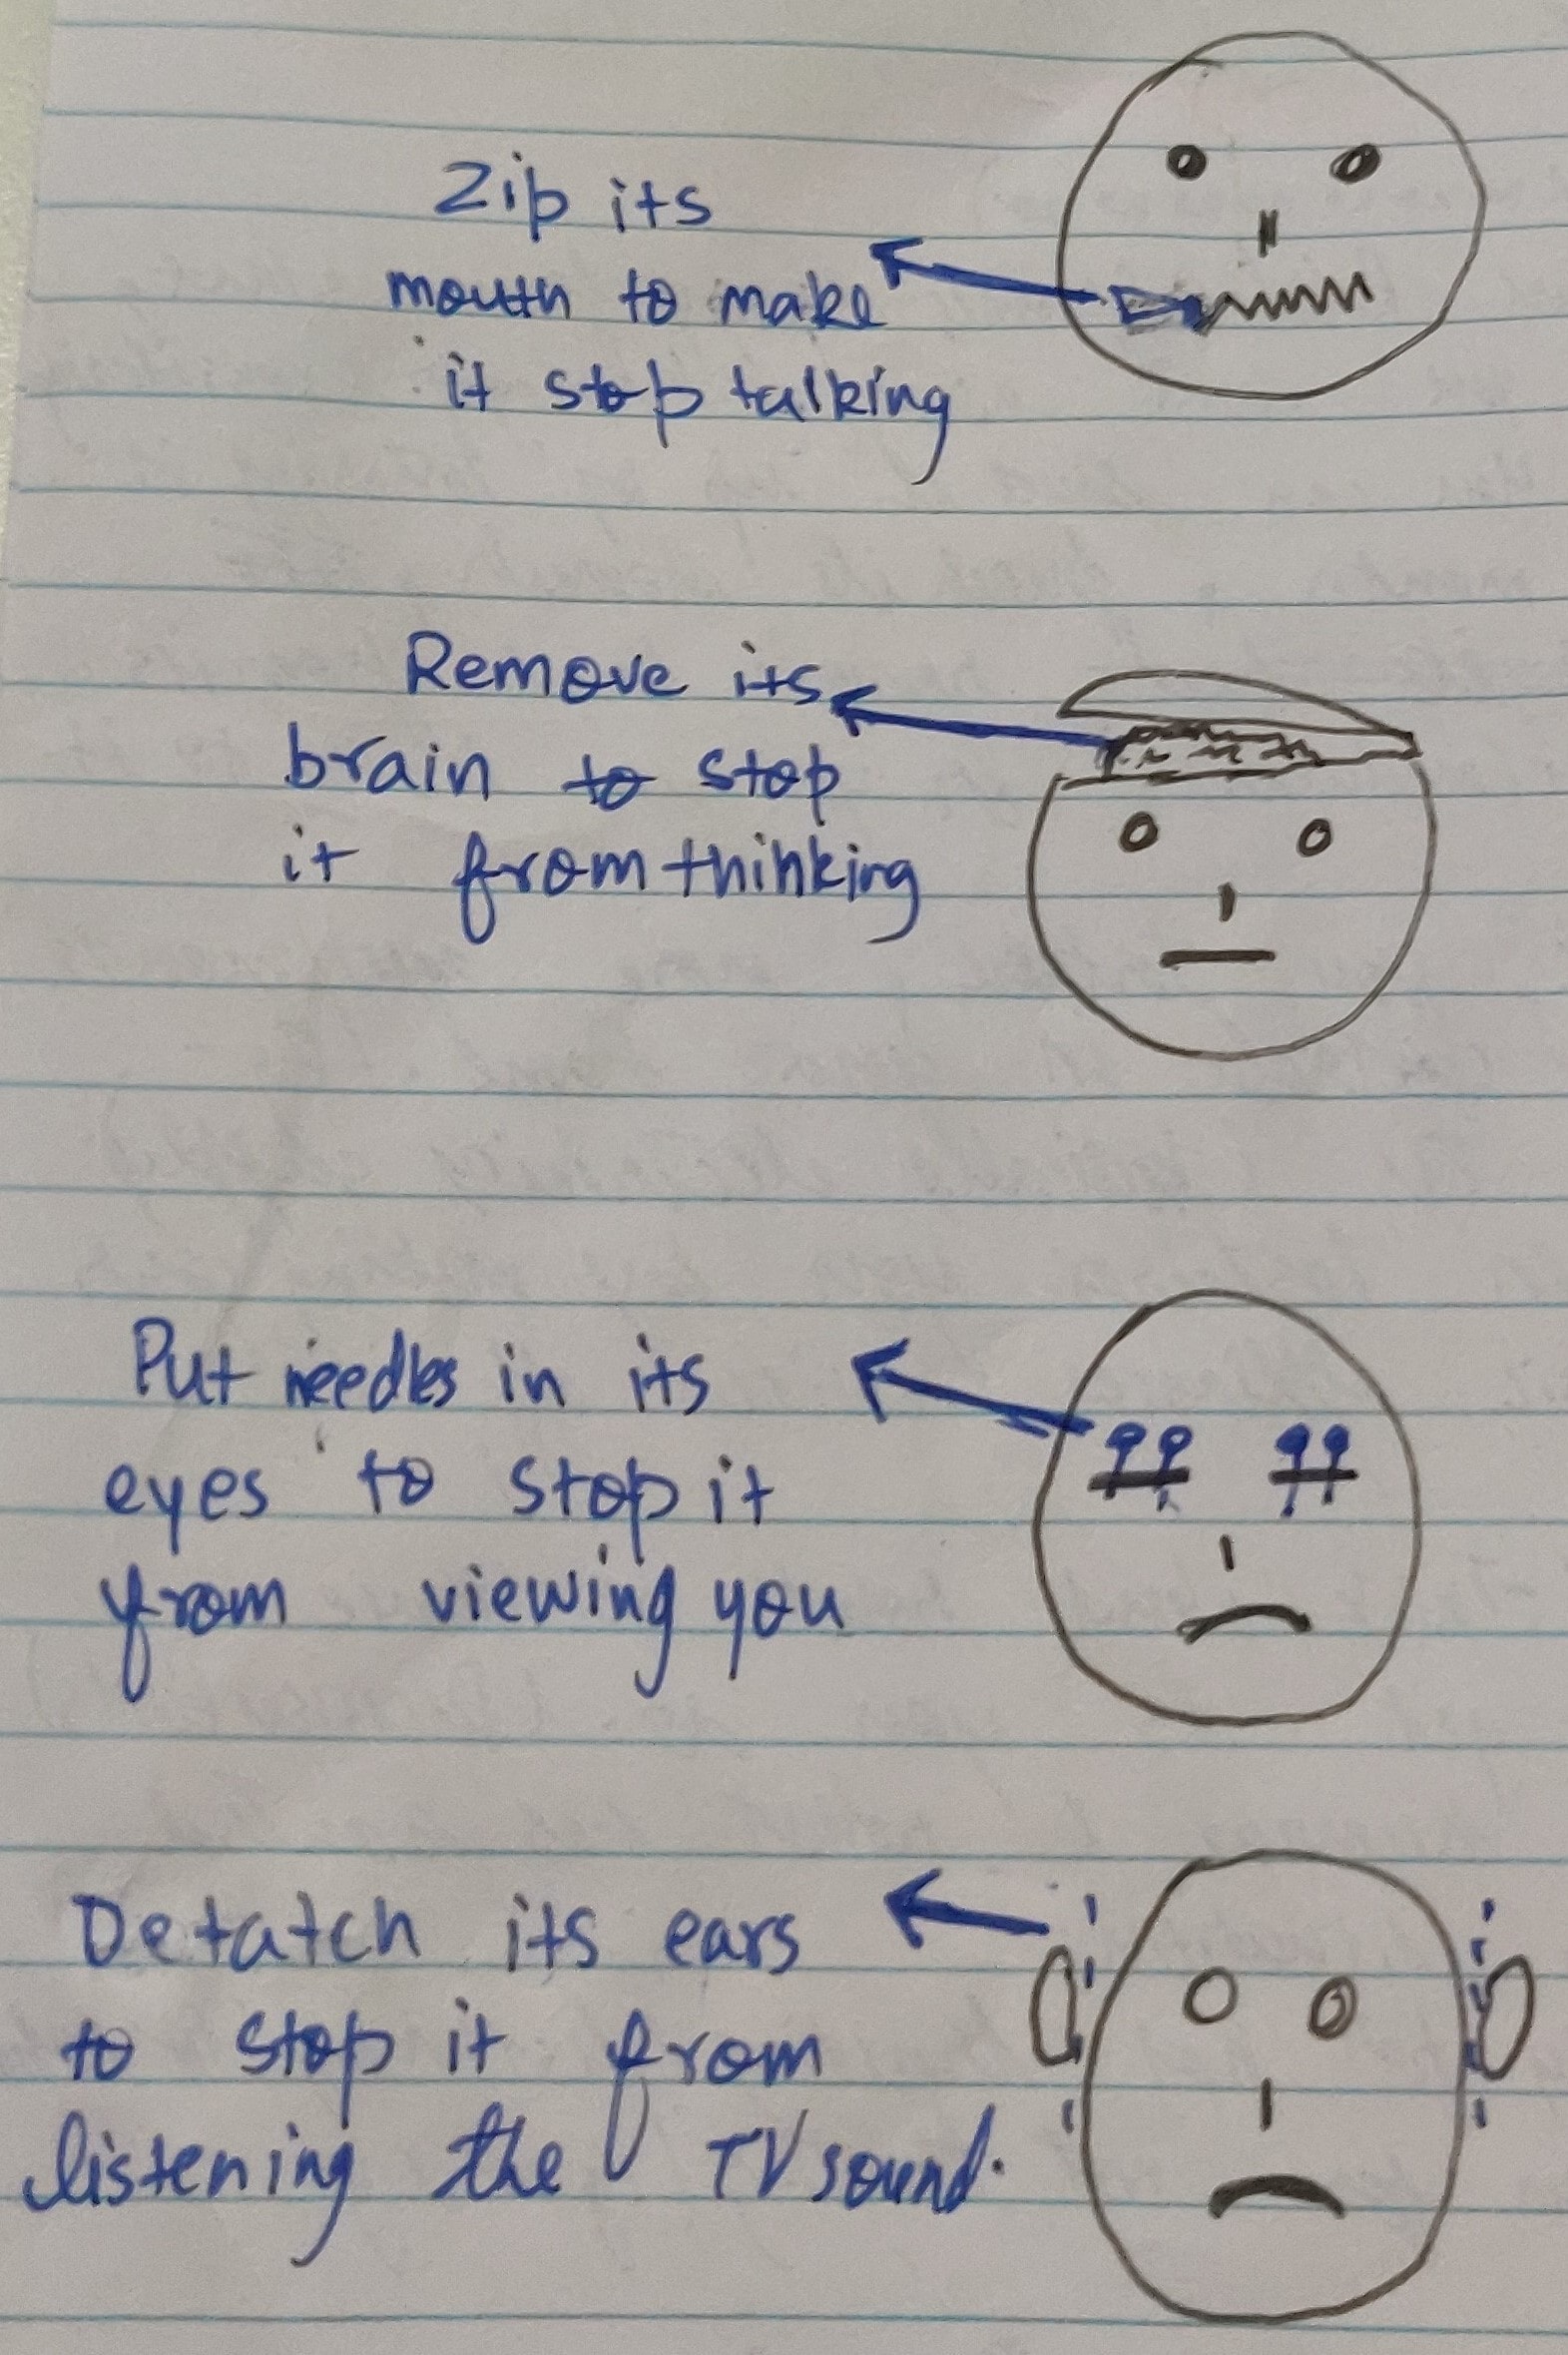 Zip its
mouth to make
it stop talking
Remove its
brain to stop
it from thinking
Put needles in its
eyes to stop it
from viewing you
Detatch its ears
to stop it from
listening the TV sound.